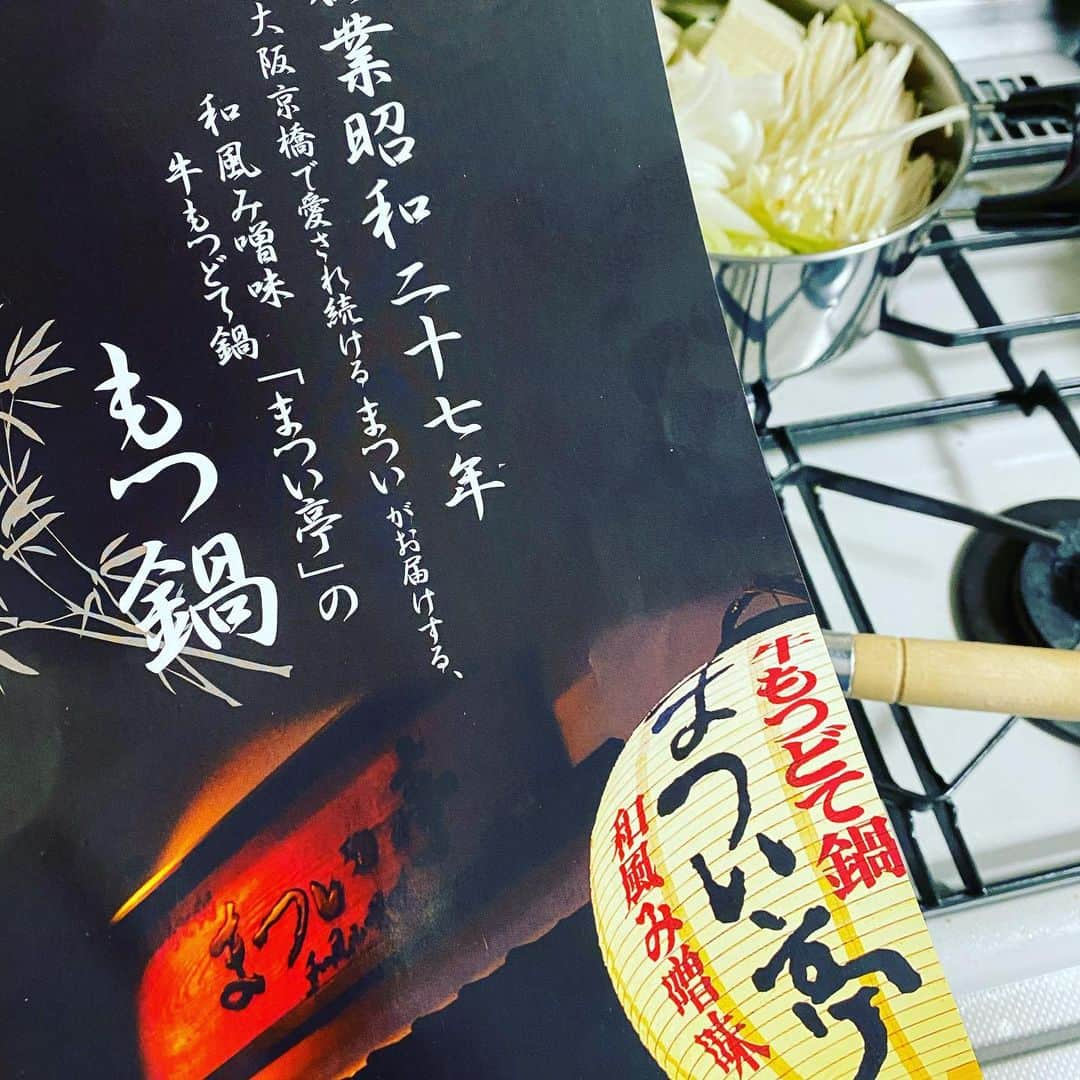 創業昭和二十七年
大阪京橋で愛され続けるまついがお届けする、
和風み噌味
牛もつどて鍋「まつい亭」の
もつ鍋
牛もつどて鍋
まつい亭
和風み噌味
まつい